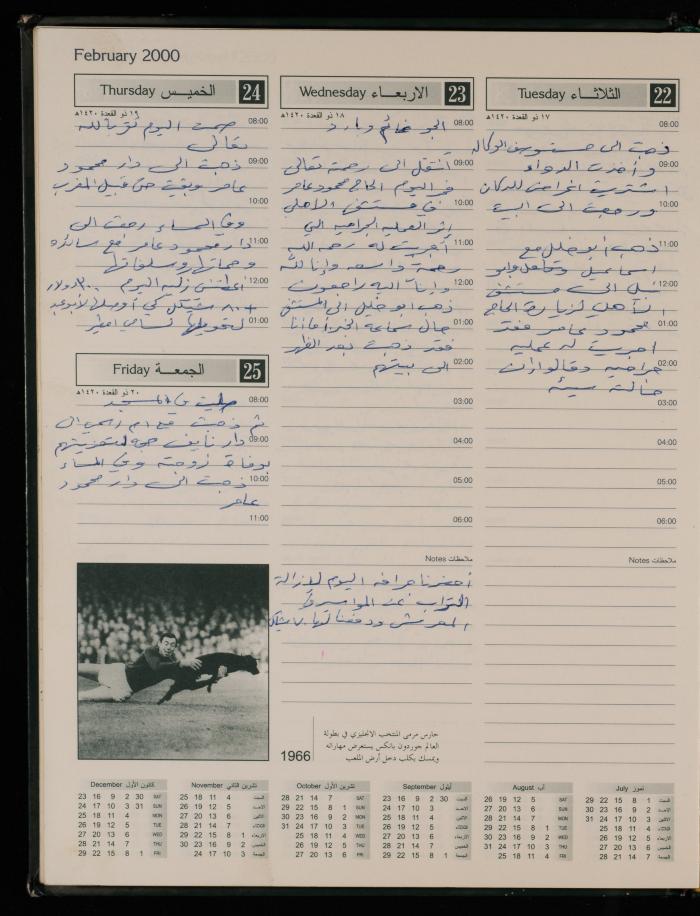 February 2000
الثلاثـــاء Tuesday 22
١٧ ذو القعدة ١٤٢٠هـ
08:00
ذهبت الى مستوصف الوكالة
09:00
و أخذت الدواء
اشتريت اغراض للدكان
10:00
ورجعت الى البيت
11:00
ذهب أبو خليل مع
اسماعيل و
12:00
الى مستشفى
الأهلي لزيارة الحاج
01:00
محمود عامر فقد
اجريت له عمليه
02:00
جراحيه وقالوا ان
حالته سيئه
03:00
04:00
05:00
06:00
ملاحظات Notes
الاربعـــاء Wednesday 23
١٨ ذو القعدة ١٤٢٠هـ
08:00
الجو غائم وبارد
09:00
أنتقل الى رحمة تعالى
في اليوم الحاج محمود عامر
10:00
في مستشفى الاهلي
إثر العمليه الجراحيه التي
11:00
أجريت له رحمه الله
رحمة واسعه وإنا لله
12:00
وإنا اليه راجعون
ذهب ابو خليل الى المستشفى
01:00
حال سماعه الخبر أما أنا
فقد ذهبت بعد الظهر
02:00
الى بيتهم
03:00
04:00
05:00
06:00
ملاحظات Notes
أحضرنا جرافه اليوم لإزالة
التراب عن المواسير
ودفعنا لها شيكل
الخميـس Thursday 24
١٩ ذو القعدة ١٤٢٠هـ
08:00
صمت اليوم لله
تعالى
09:00
ذهبت الى دار محمود
عامر وبقيت حتى قبيل المغرب
10:00
وفي المساء رجعت الى
11:00
دار محمود عامر مع سائده
وحماتها وسلفاتها
12:00
أعطتني اليوم دولار
شيكل كي
01:00
لتحويلها
الجمعـــة Friday 25
٢٠ ذو القعدة ١٤٢٠هـ
08:00
صليت في المسجد
ثم ذهبت مع ام الى
09:00
دار نايف لتعزيتهم
بوفاة زوجته وفي المساء
10:00
ذهبت الى دار محمود
عامر
11:00
1966
حارس مرمى المنتخب الانجليزي في بطولة
العالم جوردون بانكس يستعرض مهاراته
ويمسك بكلب دخل أرض الملعب
كانون الأول December
23 16 9 2 30 SAT
24 17 10 3 31 SUN
25 18 11 4 MON
26 19 12 5 TUE
27 20 13 6 WED
28 21 14 7 THU
29 22 15 8 1 FRI
تشرين الثاني November
25 18 11 4 السبت
26 19 12 5 الاحد
27 20 13 6 الاثنين
28 21 14 7 الثلاثاء
29 22 15 8 1 الاربعاء
30 23 16 9 2 الخميس
24 17 10 3 الجمعة
تشرين الأول October
28 21 14 7 SAT
29 22 15 8 1 SUN
30 23 16 9 2 MON
31 24 17 10 3 TUE
25 18 11 4 WED
26 19 12 5 THU
27 20 13 6 FRI
أيلول September
23 16 9 2 30 السبت
24 17 10 3 الاحد
25 18 11 4 الاثنين
26 19 12 5 الثلاثاء
27 20 13 6 الاربعاء
28 21 14 7 الخميس
29 22 15 8 1 الجمعة
آب August
26 19 12 5 SAT
27 20 13 6 SUN
28 21 14 7 MON
29 22 15 8 1 TUE
30 23 16 9 2 WED
31 24 17 10 3 THU
25 18 11 4 FRI
تموز July
29 22 15 8 1 السبت
30 23 16 9 2 الاحد
31 24 17 10 3 الاثنين
25 18 11 4 الثلاثاء
26 19 12 5 الاربعاء
27 20 13 6 الخميس
28 21 14 7 الجمعة